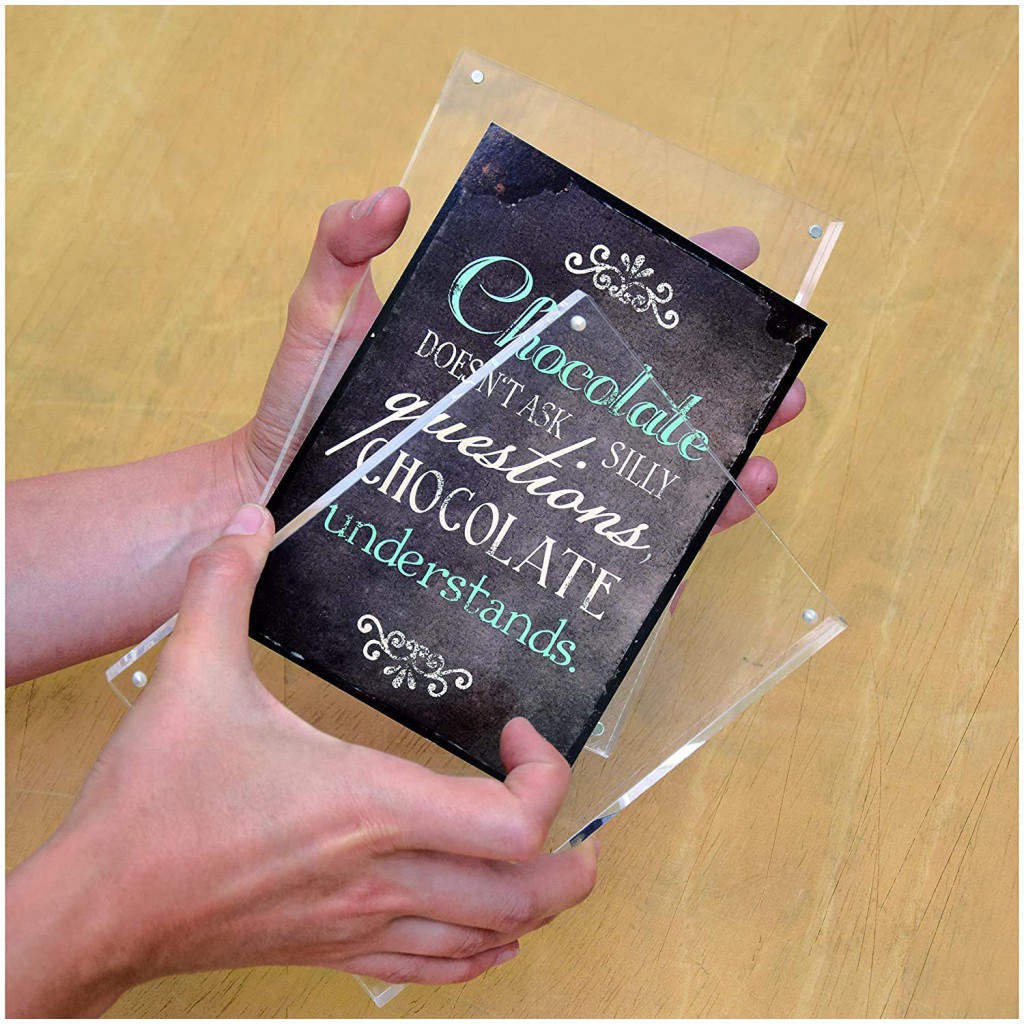 Chocolate
DOESN'T ASK SILLY
questions,
CHOCOLATE
understands.